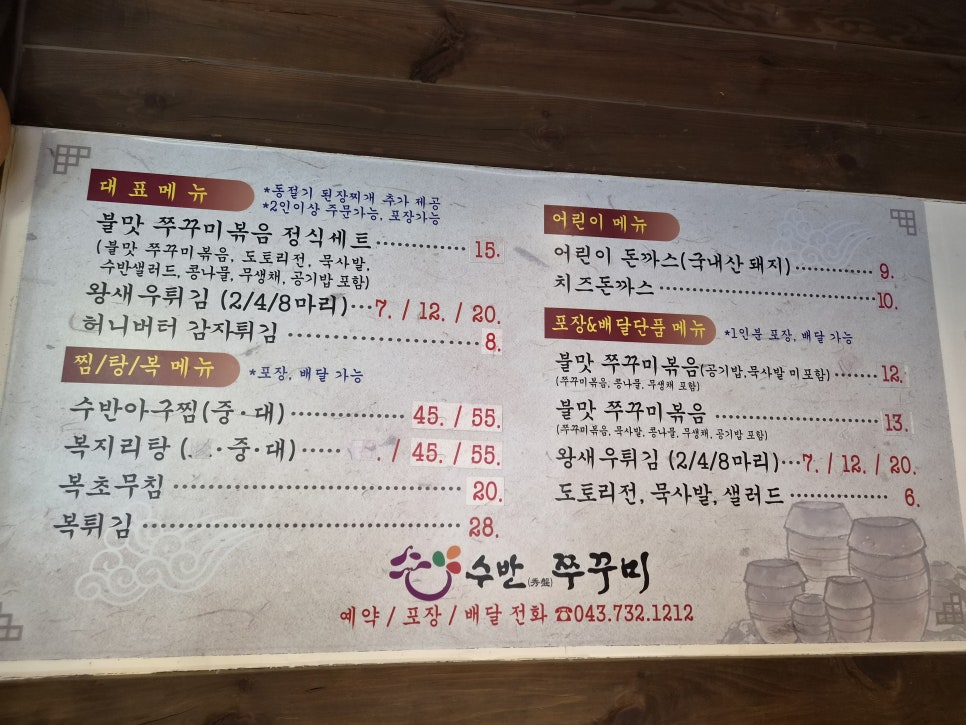 대표메뉴
*동절기 된장찌개 추가 제공
*2인이상 주문가능, 포장가능
불맛 쭈꾸미볶음 정식세트 15.
(불맛 쭈꾸미볶음, 도토리전, 묵사발,
수반샐러드, 콩나물, 무생채, 공기밥 포함)
왕새우튀김 (2/4/8마리) 7. / 12. / 20.
허니버터 감자튀김 8.
찜/탕/복 메뉴
*포장, 배달 가능
수반아구찜(중·대) 45. / 55.
복지리탕 ( ·중·대) / 45. / 55.
복초무침 20.
복튀김 28.
어린이 메뉴
어린이 돈까스(국내산 돼지) 9.
치즈돈까스 10.
포장&배달단품 메뉴
*1인분 포장, 배달 가능
불맛 쭈꾸미볶음(공기밥,묵사발 미포함) 12.
(쭈꾸미볶음, 콩나물, 무생채 포함)
불맛 쭈꾸미볶음 13.
(쭈꾸미볶음, 묵사발, 콩나물, 무생채, 공기밥 포함)
왕새우튀김 (2/4/8마리) 7. / 12. / 20.
도토리전, 묵사발, 샐러드 6.
수반(秀盤)쭈꾸미
예약 / 포장 / 배달 전화 ☎043.732.1212